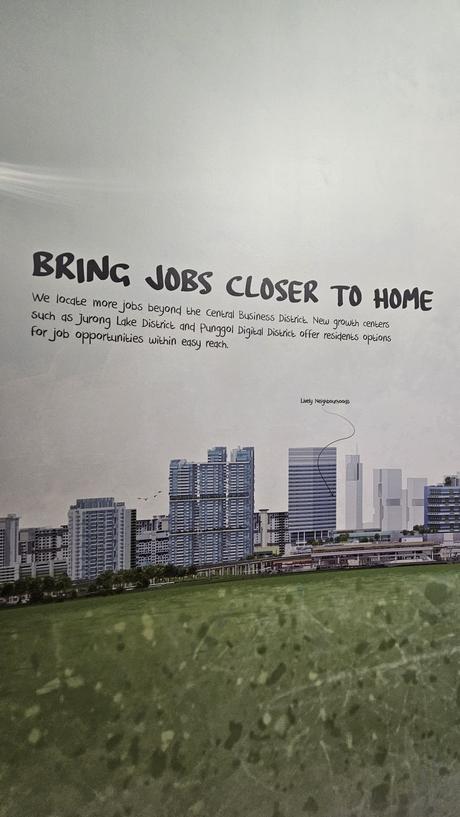 BRING JOBS CLOSER TO HOME
We locate more jobs beyond the Central Business District. New growth centers
such as Jurong Lake District and Punggol Digital District offer residents options
for job opportunities within easy reach.
Lively Neighbourhoods